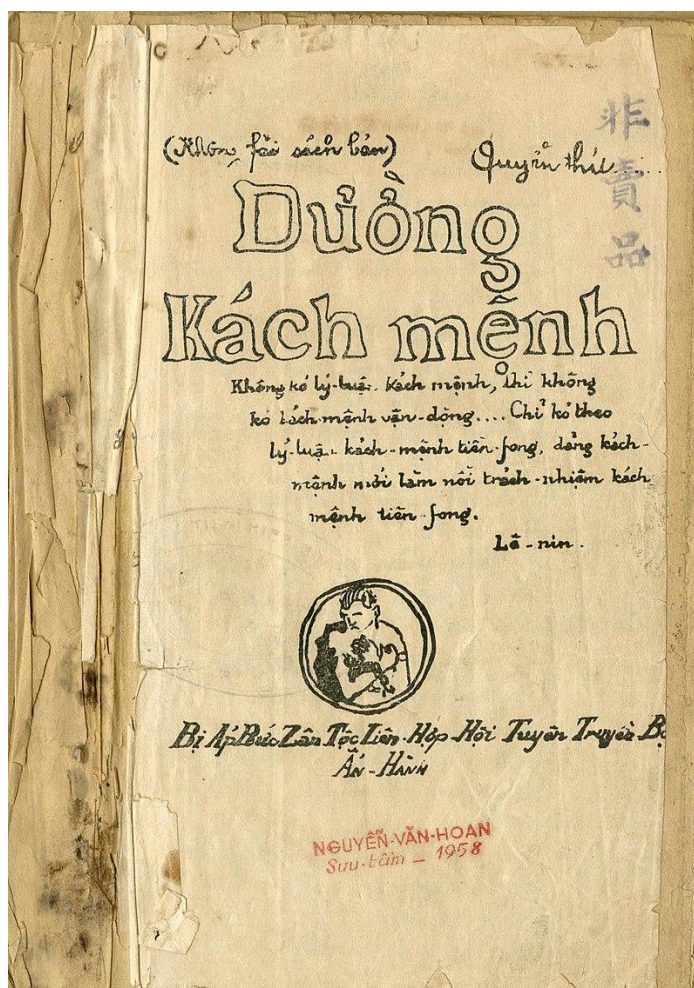 (Không fải sách bán)
Quyển thứ.....
非賣品
Đường
Kách mệnh
Không kó lý-luận kách mệnh, thì không
kó kách mệnh vận-động.... Chỉ kó theo
lý-luận kách-mệnh tiền-fong, đảng kách-
mệnh mới làm nổi trách-nhiệm kách
mệnh tiền-fong.
Lê-nin.
Bị Áp Bức Zân Tộc Liên-Hợp-Hội Tuyên Truyền Bộ
Ấn-Hành
NGUYỄN-VĂN-HOAN
Sưu-tầm – 1958